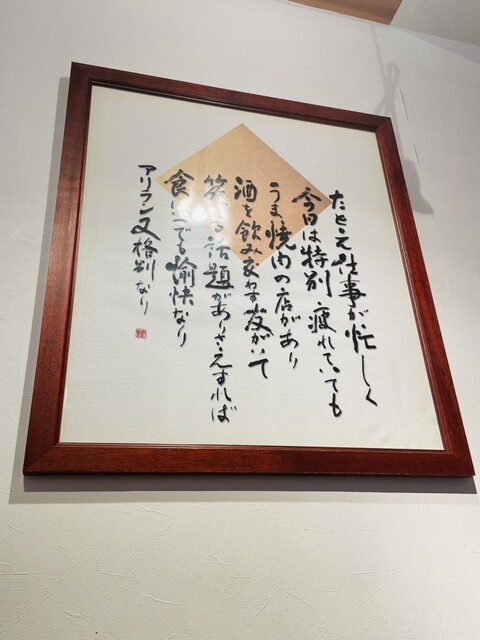 たとえ仕事が忙しく
今日は特別疲れていても
うま焼肉の店があり
酒を飲み交わす友がいて
笑える話題がありさえすれば
食はいつでも愉快なり
アリラン又格別なり